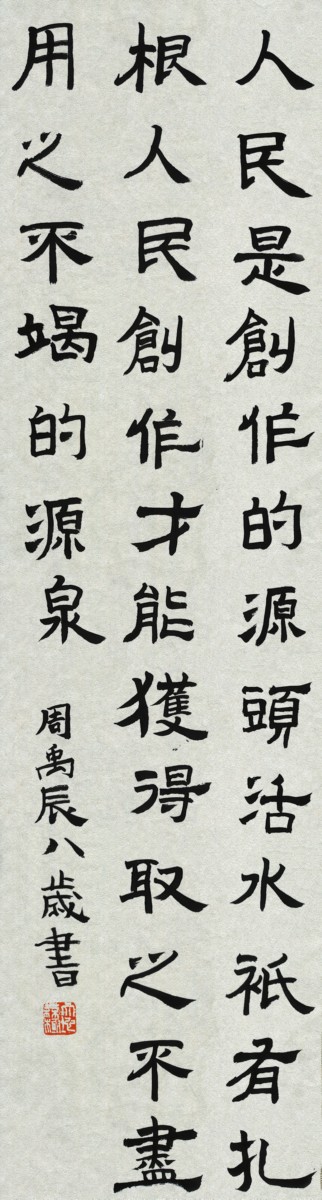 人民是創作的源頭活水祇有扎
根人民創作才能獲得取之不盡
用之不竭的源泉
周禹辰八歲書